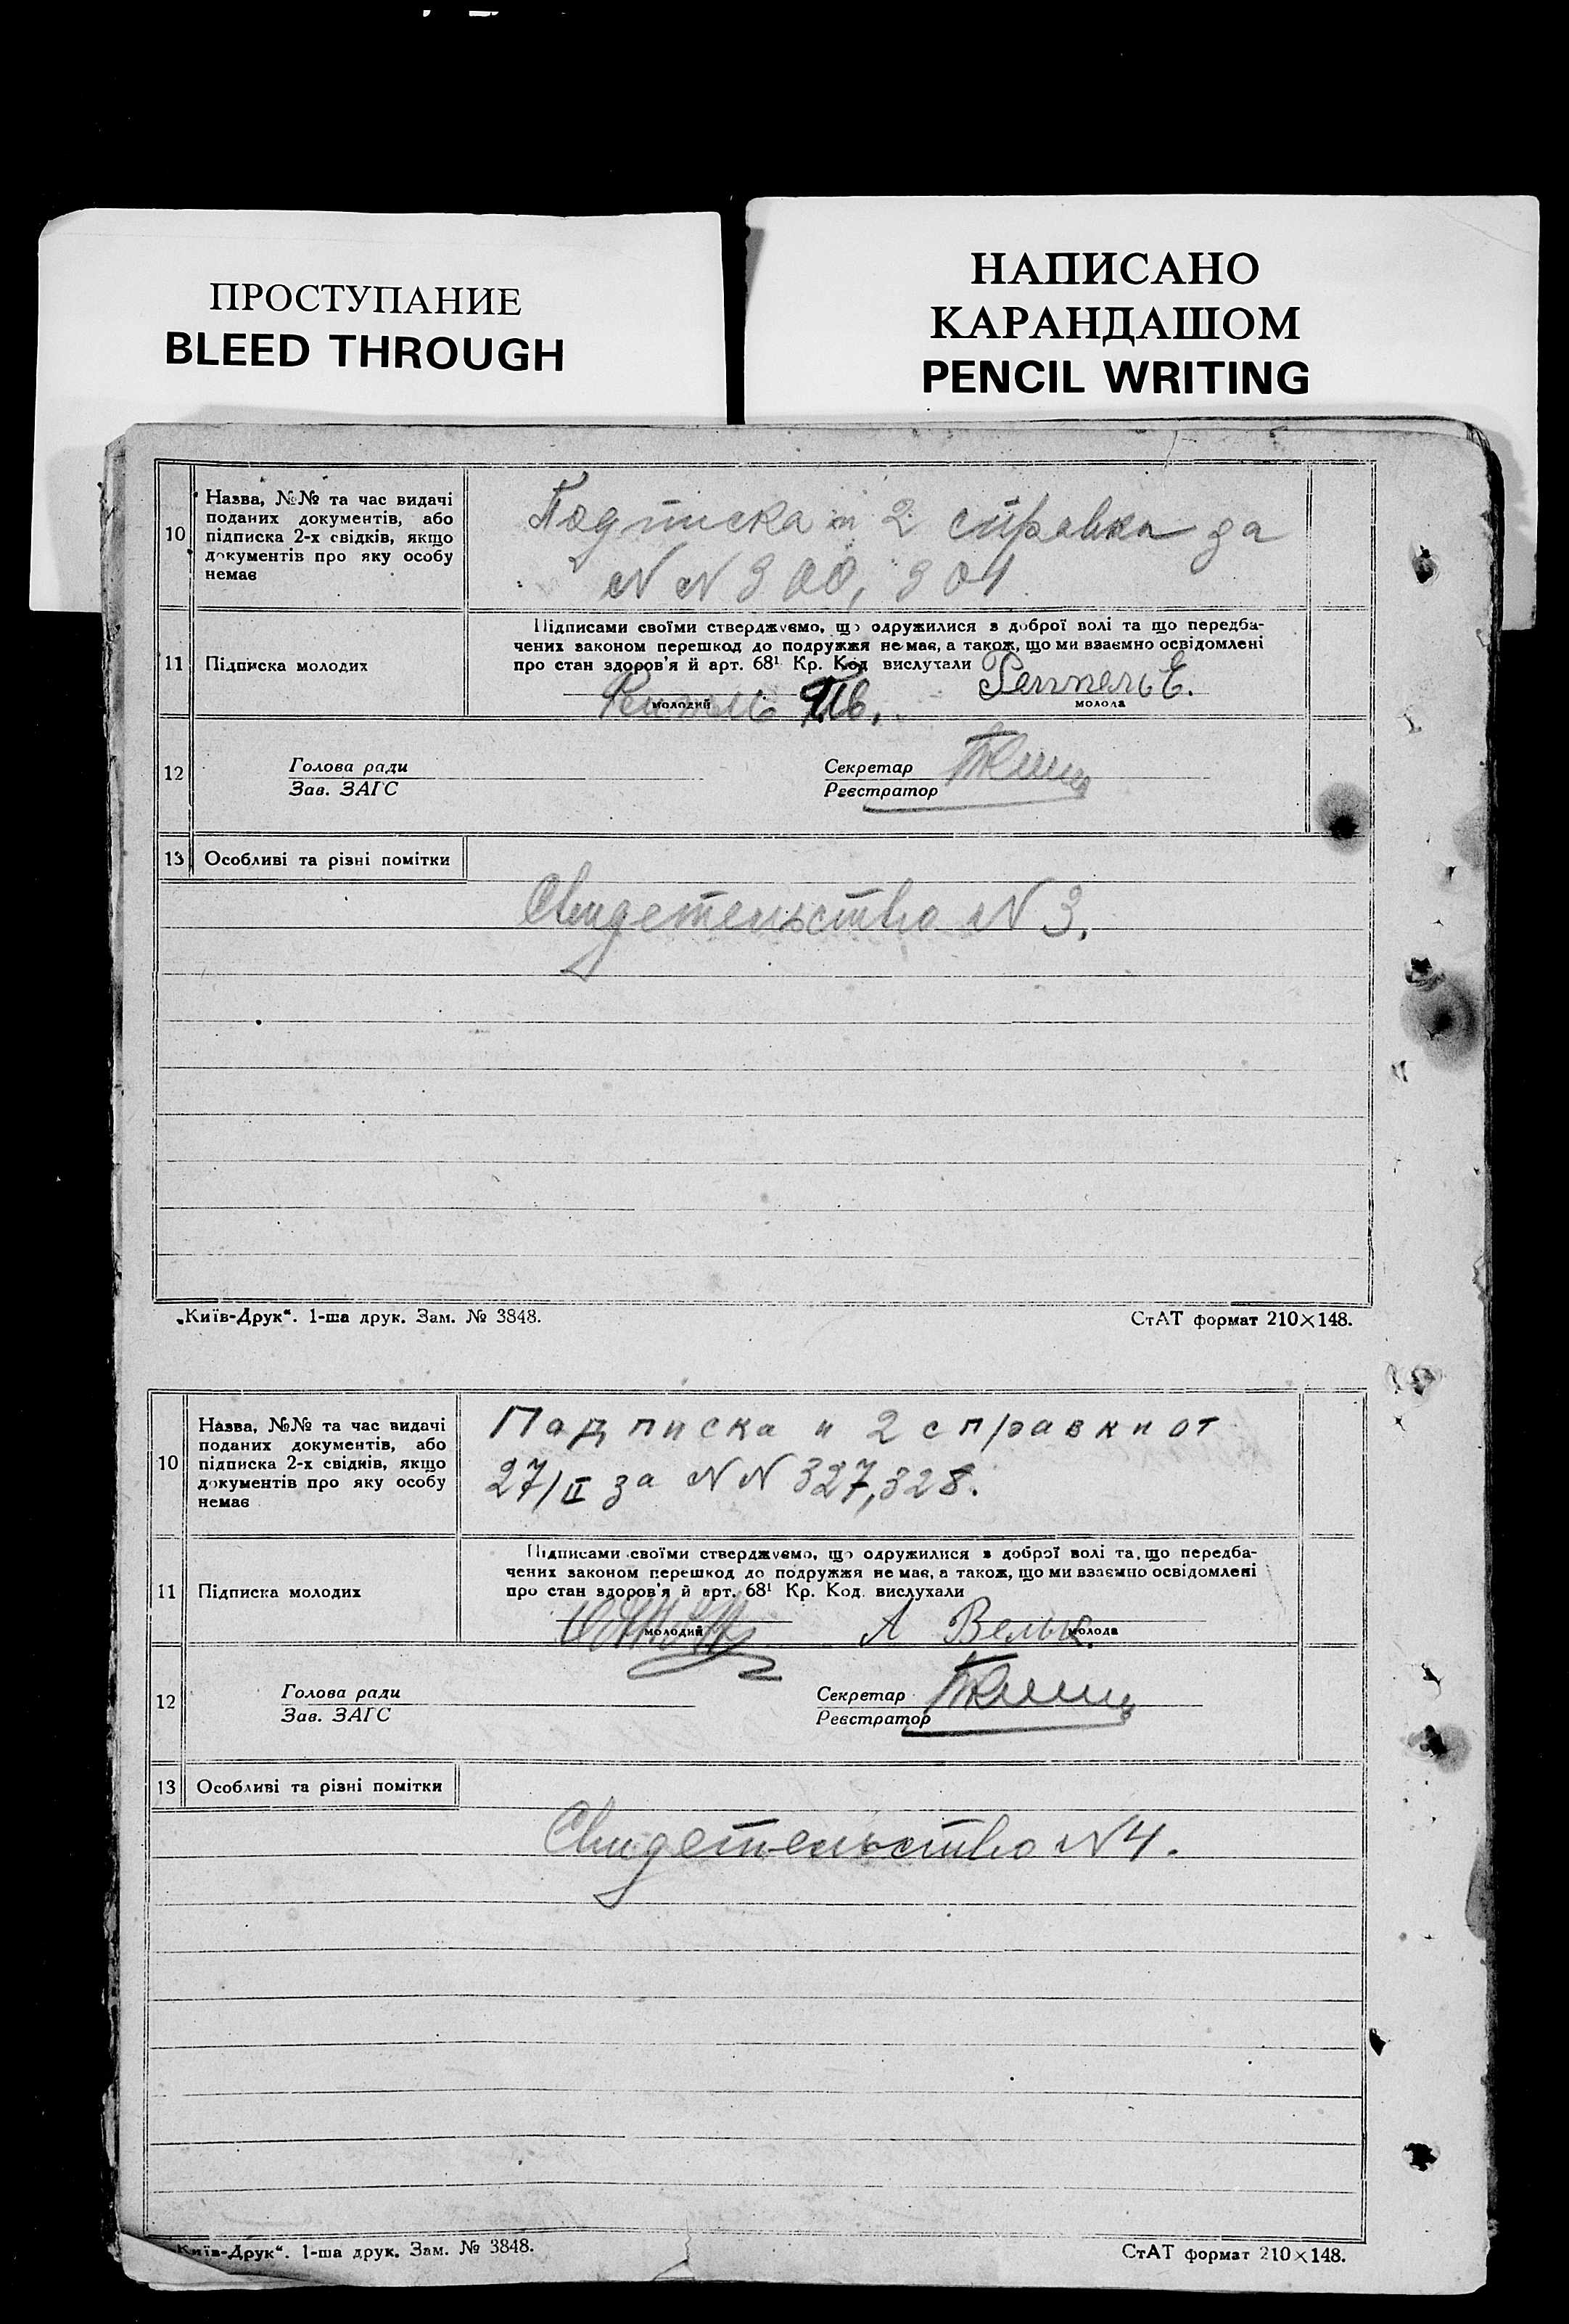 ПРОСТУПАНИЕ
BLEED THROUGH
НАПИСАНО
КАРАНДАШОМ
PENCIL WRITING
10
Назва, №№ та час видачі
поданих документів, або
підписка 2-х свідків, якщо
документів про яку особу
немає
Подписка и 2 справки за
N N 300, 301.
11
Підписка молодих
Підписами своїми стверджуємо, що одружилися з доброї волі та що передба-
чених законом перешкод до подружжя немає, а також, що ми взаємно освідомлені
про стан здоров'я й арт. 68¹ Кр. Код вислухали
молодий
молода
12
Голова ради
Зав. ЗАГС
Секретар
Реєстратор
13
Особливі та різні помітки
Свидетельство N 3.
„Київ-Друк“. 1-ша друк. Зам. № 3848.
СтАТ формат 210×148.
10
Назва, №№ та час видачі
поданих документів, або
підписка 2-х свідків, якщо
документів про яку особу
немає
Падписка и 2 справки от
27/II за N N 327,328.
11
Підписка молодих
Підписами своїми стверджуємо, що одружилися з доброї волі та, що передба-
чених законом перешкод до подружжя немає, а також, що ми взаємно освідомлені
про стан здоров'я й арт. 68¹ Кр. Код. вислухали
молодий
А Вельк.
молода
12
Голова ради
Зав. ЗАГС
Секретар
Реєстратор
13
Особливі та різні помітки
Свидетельство N 4.
Київ-Друк“. 1-ша друк. Зам. № 3848.
СтАТ формат 210×148.